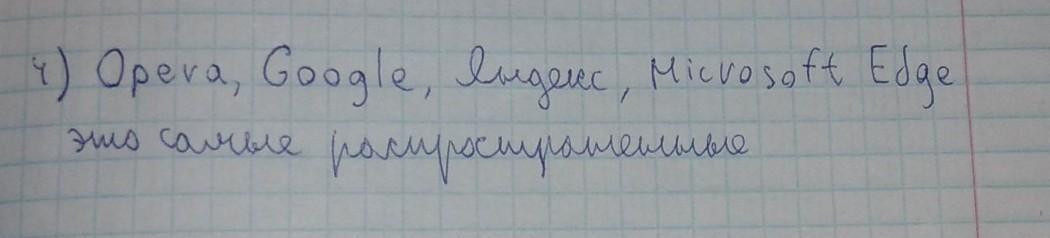 4) Opera, Google, Яндекс, Microsoft Edge
это самые распространенные